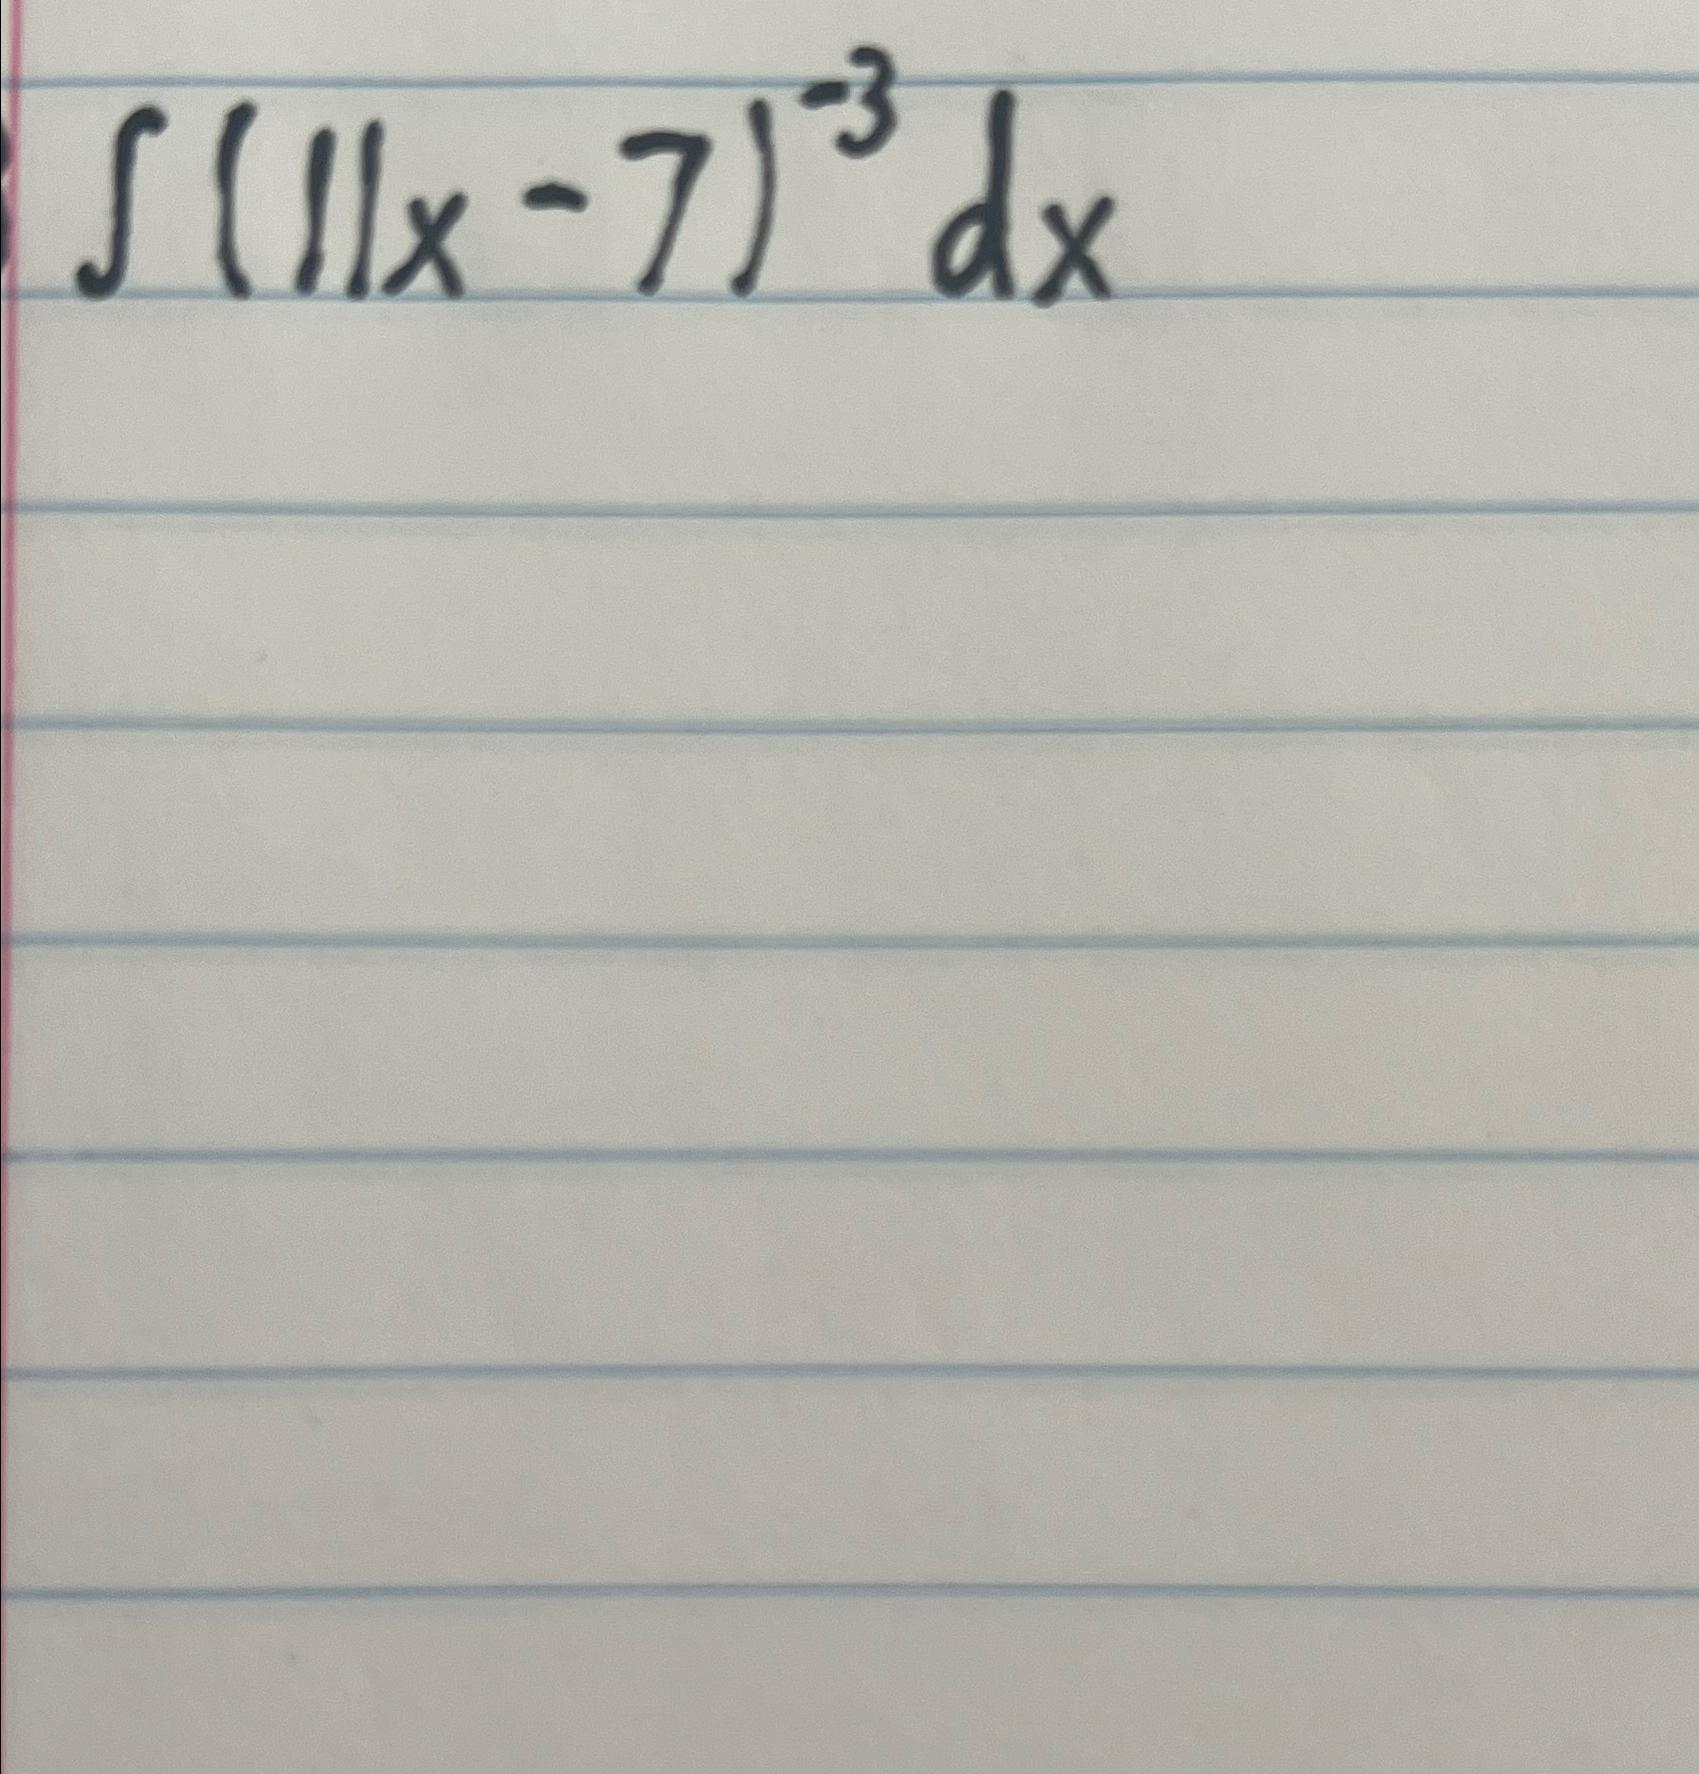 ∫(11x-7)⁻³ dx